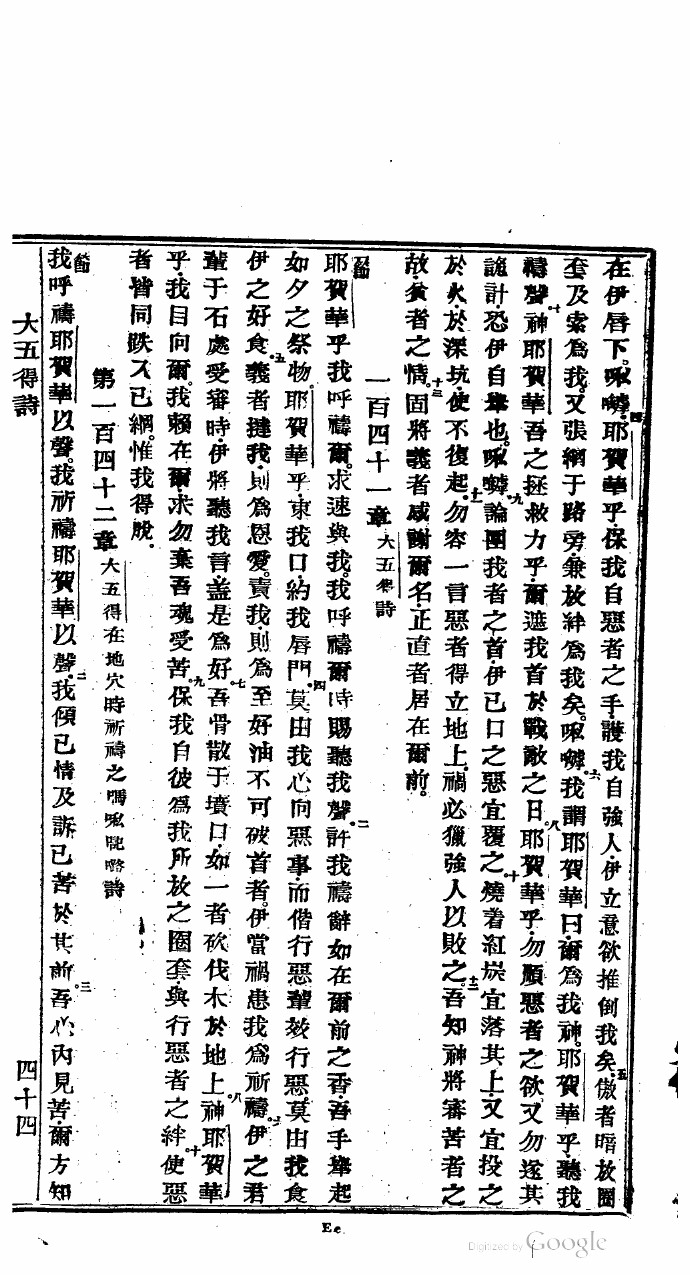 在伊唇下。㖿𠼻。四耶賀華乎、保我自惡者之手、護我自強人、伊立意欲推倒我矣。五傲者暗放圈
套及索爲我。又張網于路旁、兼放絆爲我矣。六我謂耶賀華曰、爾爲我神。耶賀華乎、聽我
禱聲。七神耶賀華、吾之拯救力乎、爾遮我首於戰敵之日。八耶賀華乎、勿順惡者之欲、又勿遂其
詭計、恐伊自舉也。九論圍我者之首、伊已口之惡宜覆之。十燒着紅炭宜落其上、又宜投之
於火、於深坑、使不復起。十一勿容一言惡者得立地上。禍必獵強人以敗之。十二吾知神將審苦者之
故、貧者之情。十三固將義者感謝爾名、正直者居在爾前。
一百四十一章 大五得詩
一節耶賀華乎、我呼禱爾。求速與我、我呼禱爾時、賜聽我聲。二許我禱辭如在爾前之香、吾手舉起
如夕之祭物。三耶賀華乎、束我口、約我唇門。四莫由我心向惡事、而偕行惡輩效行惡、莫由我食
伊之好食。五義者撻我、則爲恩愛。責我、則爲至好油、不可破首者。伊當禍患、我爲祈禱。六伊之君
輩于石處受審時、伊將聽我言、蓋是爲好。七吾骨散于墳口、如一者砍伐木於地上。八神耶賀華
乎、我目向爾、我賴在爾、求勿棄吾魂受苦。九保我自彼爲我所放之圈套、與行惡者之絆。十使惡
者皆同跌入已網、惟我得脫。
第一百四十二章 大五得在地穴時祈禱之詩
一節我呼禱耶賀華以聲。我祈禱耶賀華以聲。二我傾已情及訴已苦於其前。三吾心內見苦、爾方知
大五得詩 四十四
Ee
Digitized by Google